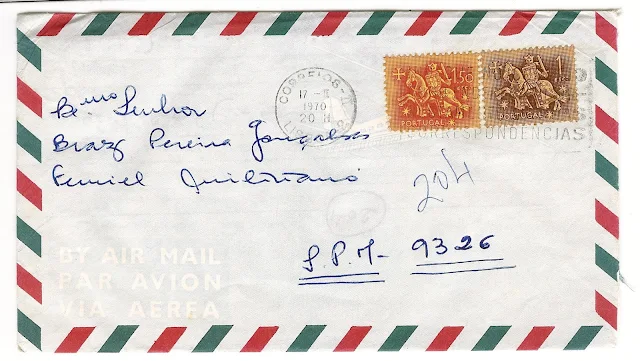 CORREIOS
17 - II
1970
20 H
LISBOA
1$50
PORTUGAL
1$
PORTUGAL
CORRESPONDÊNCIAS
Senhor
Braz Pereira Gonçalves
204
S.P.M- 9326
BY AIR MAIL
PAR AVION
VIA AEREA